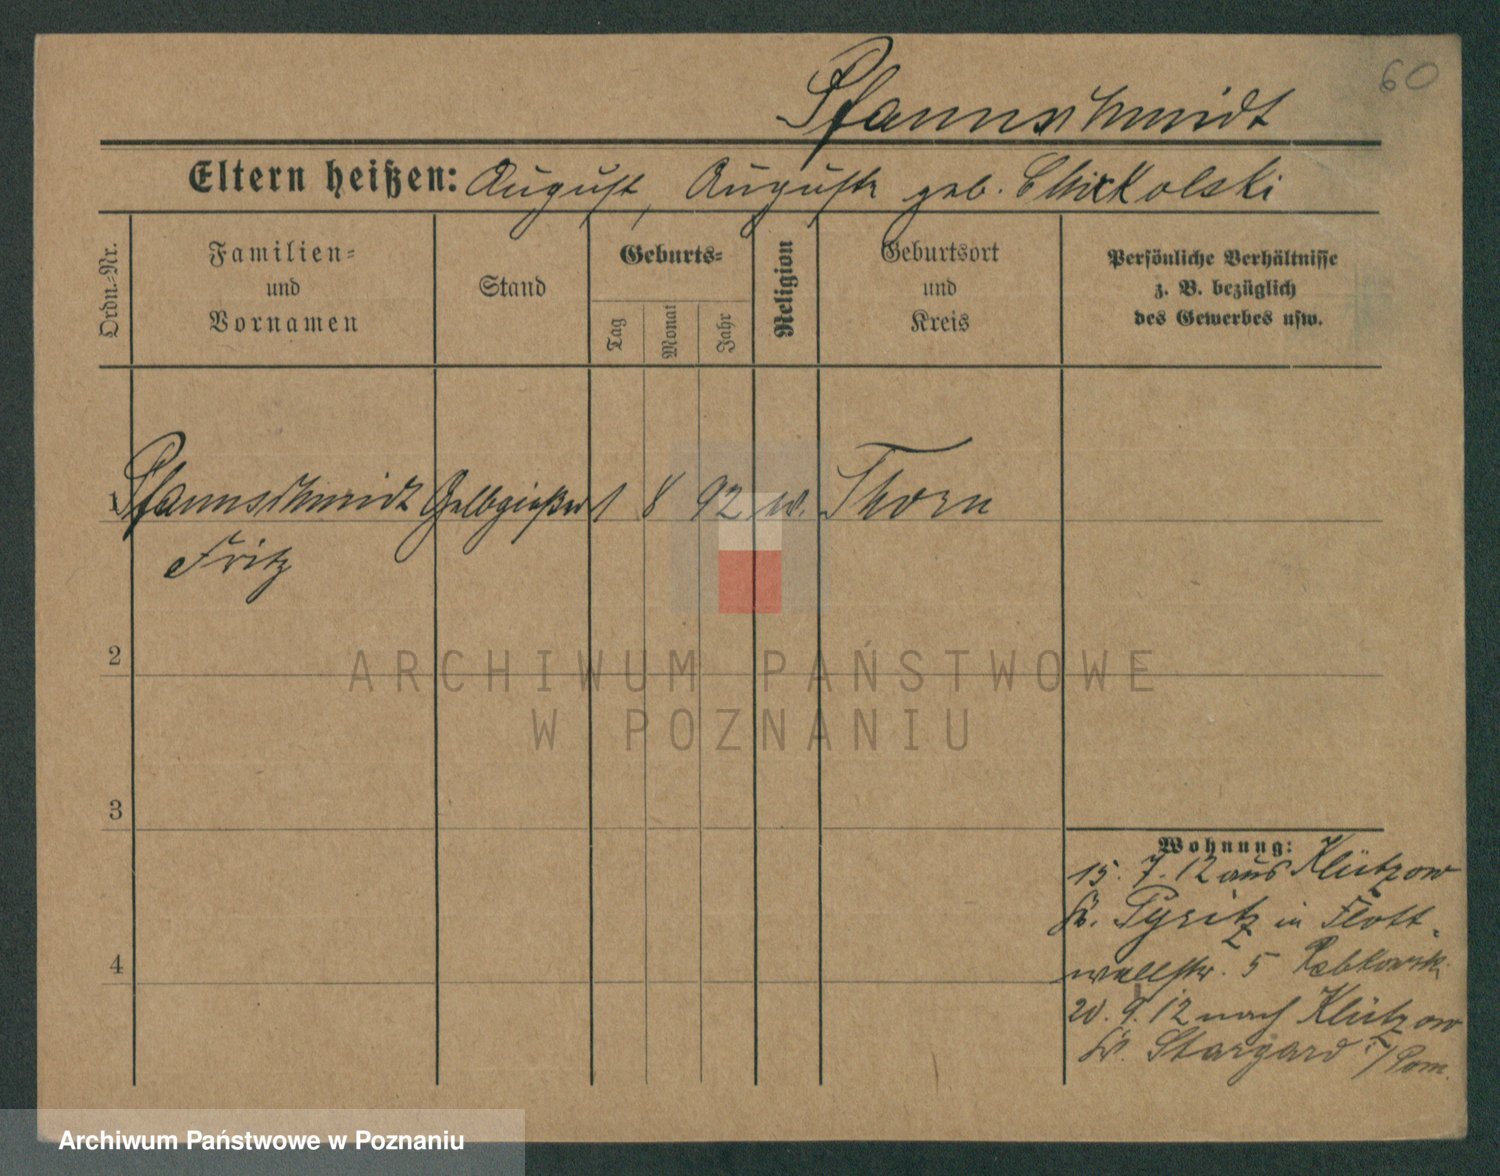 60
Pfannschmidt
Eltern heißen: August, Auguste geb.
Ordn.-Nr.
Familien-
und
Vornamen
Stand
Geburts-
Tag
Monat
Jahr
Religion
Geburtsort
und
Kreis
Persönliche Verhältnisse
z. B. bezüglich
des Gewerbes usw.
1 Pfannschmidt Gelbgießer 1 8 92 Thorn
Fritz
2
ARCHIWUM PAŃSTWOWE
W POZNANIU
3
Wohnung:
15. 7. 12 aus Klützow
Kr. Pyritz in Flott-
wellstr. 5
20. 9. 12 nach Klützow
Kr. Stargard i/Pom.
4
Archiwum Państwowe w Poznaniu